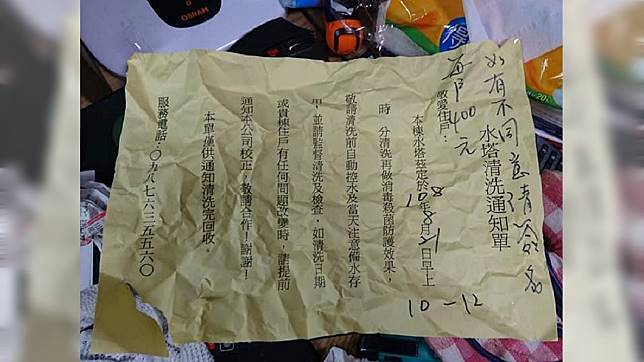 如有不同意請簽名
水塔清洗通知單
每戶400元
敬愛住戶：
本棟水塔茲定於108年8月21日早上
10－12
時　分清洗再做消毒殺菌防護效果，
敬請清洗前自動控水及當天注意備水存
用，並請監督清洗及檢查，如清洗日期
或貴棟住戶有任何問題改變時，請提前
通知本公司校正，敬請合作！謝謝！
本單僅供通知清洗完回收。
服務電話：○九八七六三五五六○
OSRAM